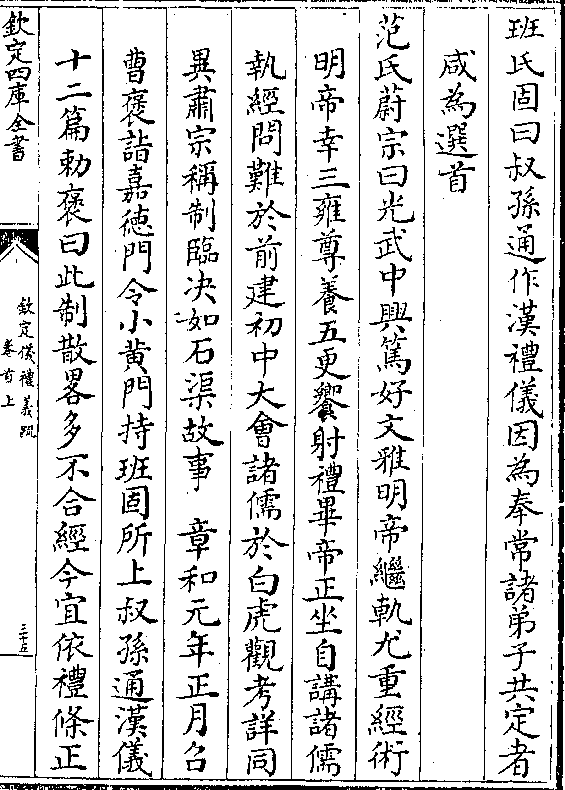 班氏固曰叔孫通作漢禮儀因為奉常諸弟子共定者
咸為選首
范氏蔚宗曰光武中興篤好文雅明帝繼軌尤重經術
明帝幸三雍尊養五更饗射禮畢帝正坐自講諸儒
執經問難於前建初中大會諸儒於白虎觀考詳同
異肅宗稱制臨决如石渠故事　章和元年正月召
曹褒詣嘉徳門令小黄門持班固所上叔孫通漢儀
十二篇勅褒曰此制散畧多不合經今宜依禮條正
欽定四庫全書
欽定儀禮義疏
卷首上
三十五